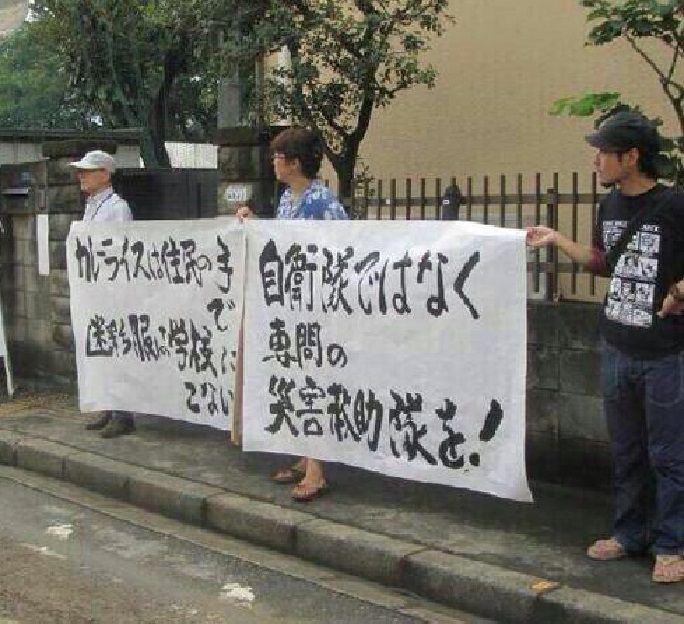 カレーライスは住民の手
で
迷彩服は学校に
こないで
自衛隊ではなく
専問の
災害救助隊を！